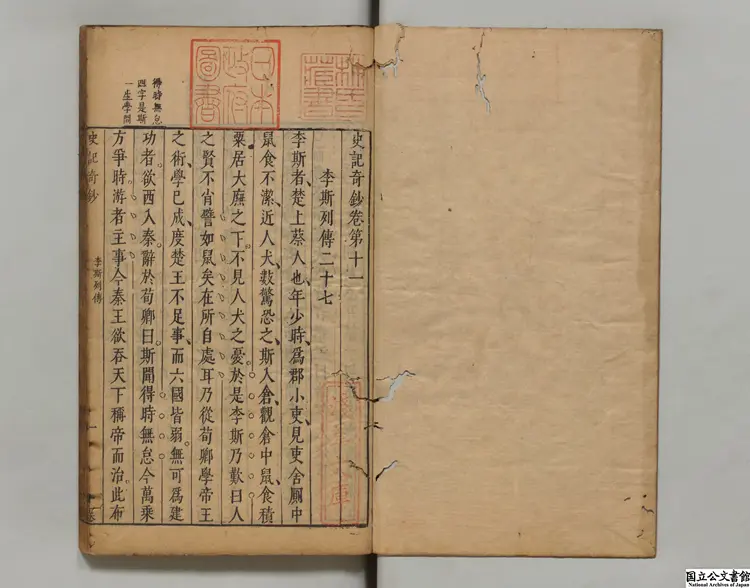 林氏藏書
日本政府圖書
淺草文庫
史記奇鈔卷第十一
李斯列傳二十七
李斯者、楚上蔡人也、年少時、爲郡小吏、見吏舍厠中
鼠食不潔近人犬、數驚恐之、斯入倉、觀倉中鼠、食積
粟居大廡之下、不見人犬之憂。於是李斯乃歎曰人
之賢不肖譬如鼠矣在所自處耳乃從荀卿學帝王
之術、學已成、度楚王不足事、而六國皆弱。無可爲建
功者。欲西入秦。辭於荀卿曰。斯聞得時無怠今萬乘
方爭時。游者主事今秦王欲吞天下稱帝而治。此布
得時無怠
四字是斯
一生學問
史記奇鈔
李斯列傳
一
国立公文書館
National Archives of Japan